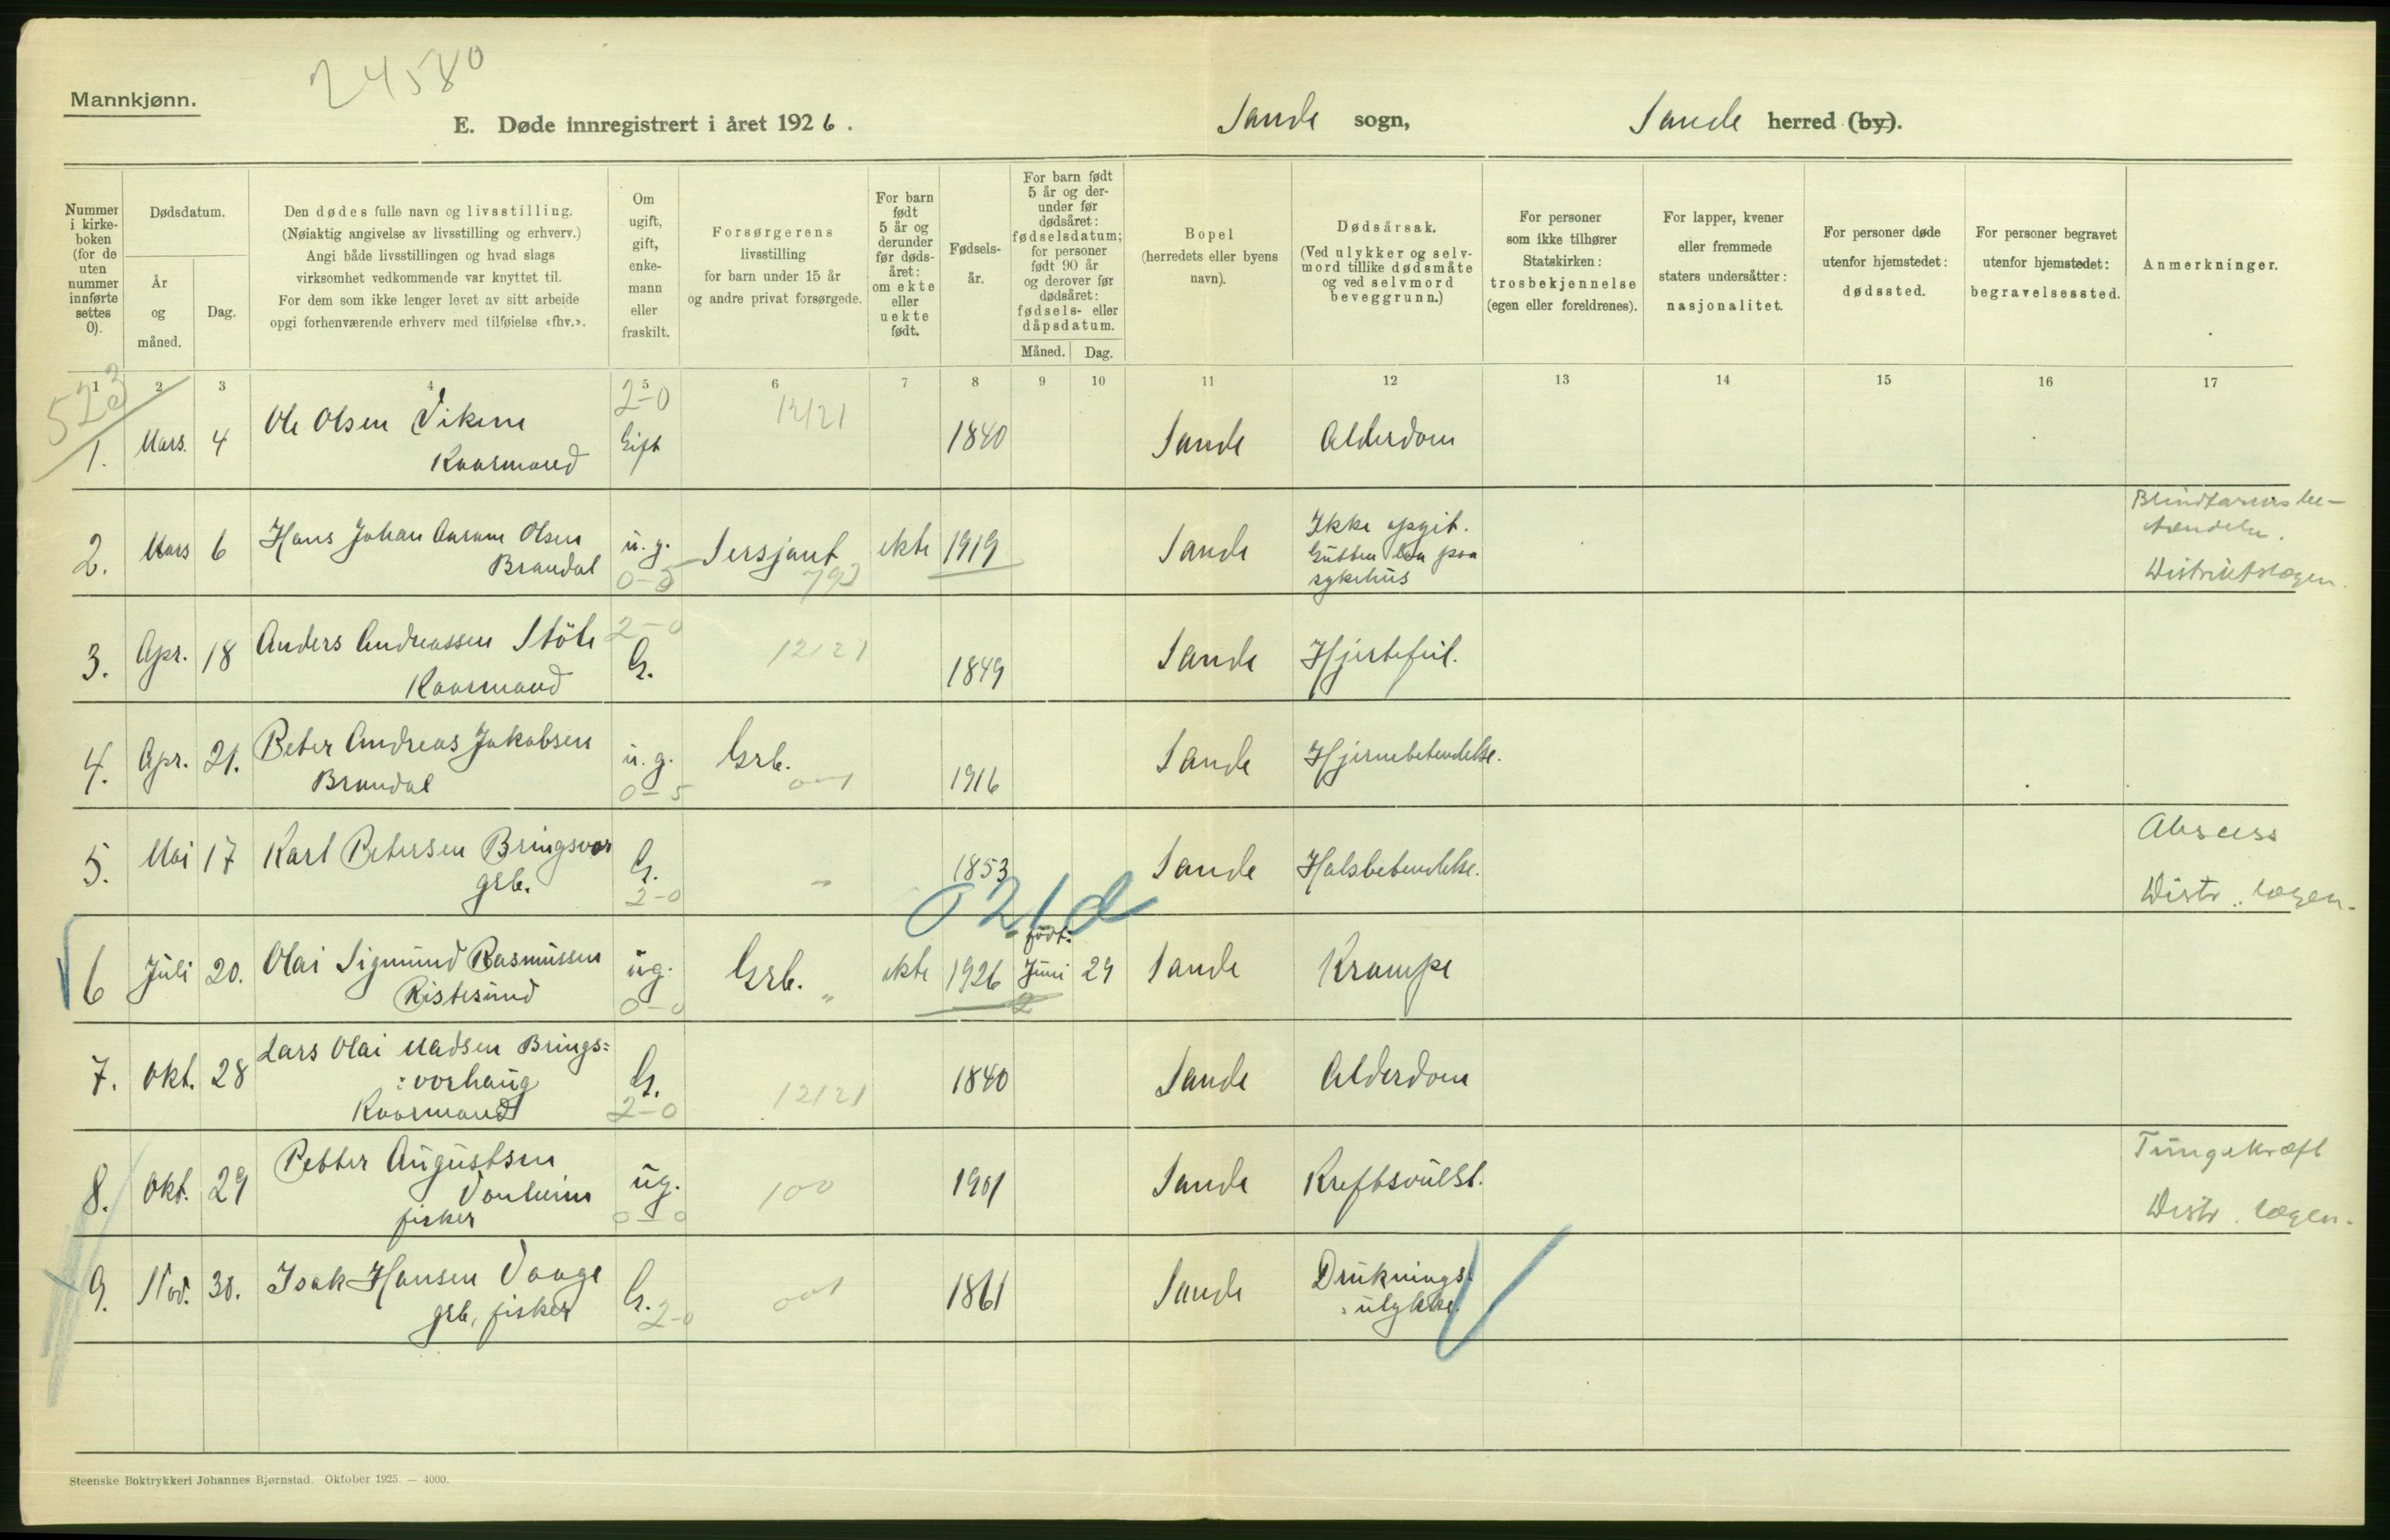 24580
Mannkjønn.
E. Døde innregistrert i året 1926.
Sande sogn,
Sande herred (by).
Nummer i kirke-boken (for de uten nummer innførte settes 0).
Dødsdatum.
År og måned.
Dag.
Den dødes fulle navn og livsstilling.
(Nøiaktig angivelse av livsstilling og erhverv.)
Angi både livsstillingen og hvad slags
virksomhet vedkommende var knyttet til.
For dem som ikke lenger levet av sitt arbeide
opgi forhenværende erhverv med tilføielse «fhv.».
Om ugift, gift, enke-mann eller fraskilt.
Forsørgerens
livsstilling
for barn under 15 år
og andre privat forsørgede.
For barn født 5 år og derunder før døds-året: om ekte eller uekte født.
Fødsels-år.
For barn født 5 år og der-under før dødsåret: fødselsdatum; for personer født 90 år og derover før dødsåret: fødsels- eller dåpsdatum.
Måned. Dag.
Bopel
(herredets eller byens
navn).
Dødsårsak.
(Ved ulykker og selv-
mord tillike dødsmåte
og ved selvmord
beveggrunn.)
For personer
som ikke tilhører
Statskirken:
trosbekjennelse
(egen eller foreldrenes).
For lapper, kvener
eller fremmede
staters undersåtter:
nasjonalitet.
For personer døde
utenfor hjemstedet:
dødssted.
For personer begravet
utenfor hjemstedet:
begravelsessted.
Anmerkninger.
1 2 3 4 5 6 7 8 9 10 11 12 13 14 15 16 17
523
2-0
12121
1. Mars. 4 Ole Olsen Viken Gift 1840 Sande Alderdom
Kaarmand
Blindtarmsbe-
tændelse.
2. Mars 6 Hans Johan Aaram Olsen u. g. Sersjant ekte 1919 Sande Ikke opgit.
Brandal 0-5 793 Gutten laa paa
sykehus
Distriktslægen.
3. Apr. 18 Anders Andreassen Støle 2-0 G. 12121 1849 Sande Hjertefeil.
Kaarmand
4. Apr. 21. Peter Andreas Jakobsen u. g. Grb. 1916 Sande Hjernebetendelse.
Brandal 0-5 001
5. Mai 17 Karl Petersen Bringsvor G. " 1853 Sande Halsbetendelse. Abscess
grb. 2-0 Distr. lægen.
021d
født:
6 Juli 20. Olai Sigmund Rasmussen ug. Grb. ekte 1926 Juni 29 Sande Krampe
Ristesund 0-0 " 2
7. Okt. 28 Lars Olai Madsen Brings= G. 12121 1840 Sande Alderdom
:vorhaug
Kaarmand 2-0
8. Okt. 29 Petter Augustsen ug. 100 1901 Sande Kreftsvulst. Tungekræft
Vonheim
fisker 0-0 Distr. lægen.
9. Nov. 30. Isak Hansen Vaage G. 2-0 001 1861 Sande Druknings:
grb, fisker :ulykke.
Steenske Boktrykkeri Johannes Bjørnstad. Oktober 1925. — 4000.